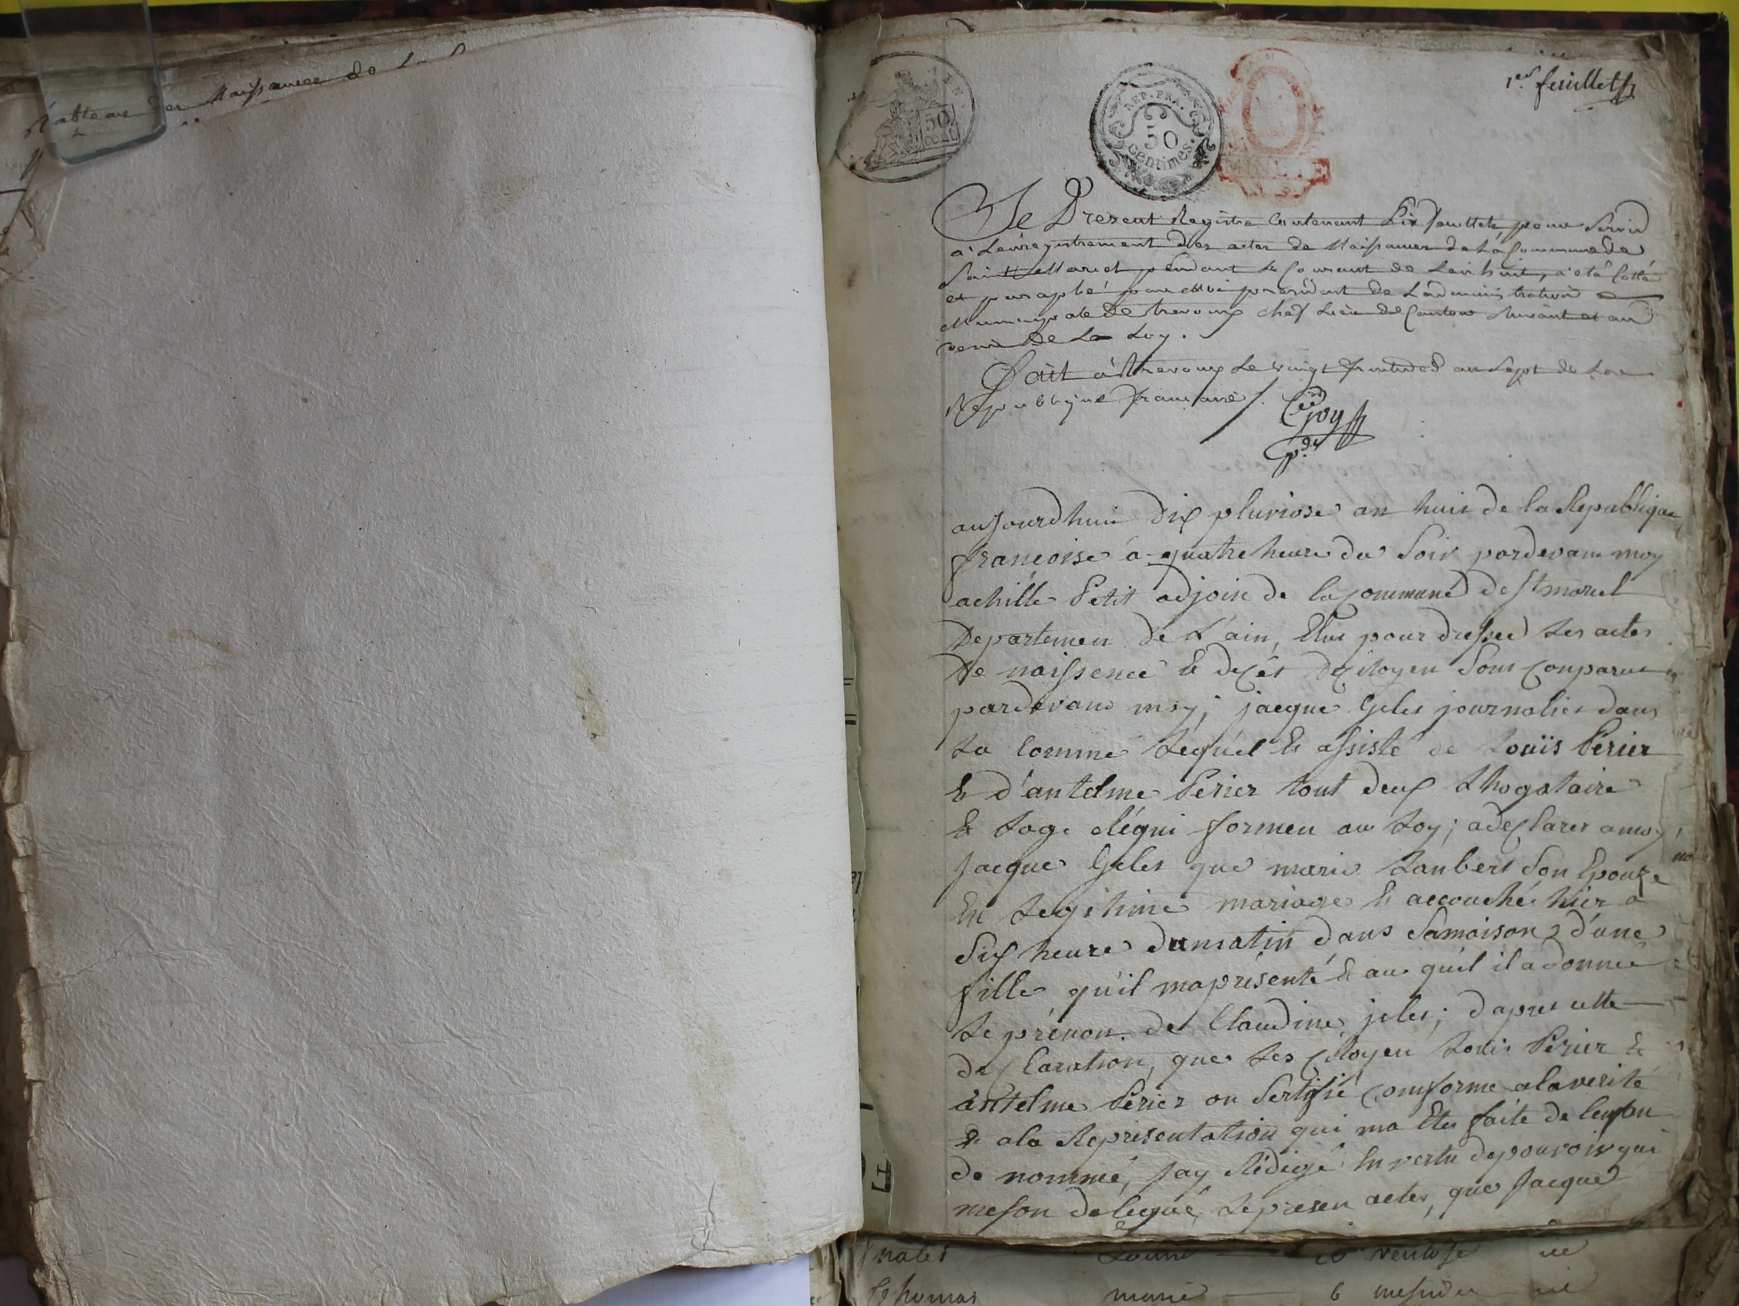 Tableau des Naissances de
REP. FRA.
50
centimes.
1er feuillet
Le Present Registre Contenant Six feuillets pour Servir
à L'enregistrement des actes de Naissances de La Commune de
Saint Marcel pendant Le Courant de L'an huit, a été Cotté
et paraphé par moi president de L'administration
Municipale de trevoux chef Lieu de Canton Suivant et au
desir de La Loy.
Fait à trevoux Le vingt fructidor an Sept de La
Republique francaise
aujourdhuie dix pluviose an huit de la Republique
françoise a quatre heure du Soir pardevant moy
achille Petit adjoin de la commune de St marcel
Departemen de L'ain, Elue pour dresser Les actes
de naissence & deçés de citoyen Sont Conparue
pardevans moy; jacque Geles journalier dans
La Comme Lequel & assisté de Louïs Périer
& d'antelme Périer tout deux
& Sage formen au Loy; a declarer a moy
jacque Geles que marie Lanbert Son Epouze
En Legitime mariage & accouché hier a
Six heure dumatin dans Samaison d'une
fille qu'il ma présenté & au quel il a donné
Le prénon de Claudine jeles; dapres cette
declaration, que Les Citoyen Louis Périer &
antelme Périer on Sertifié Comforme a la verité
& a la Representation qui ma Eté faite de lenfan
de nommé, jay Rédigé En vertu de pouvoir qui
meson delegué, Le presen actes, que Jacque
Louise ventose
thomas marie 6 messidor